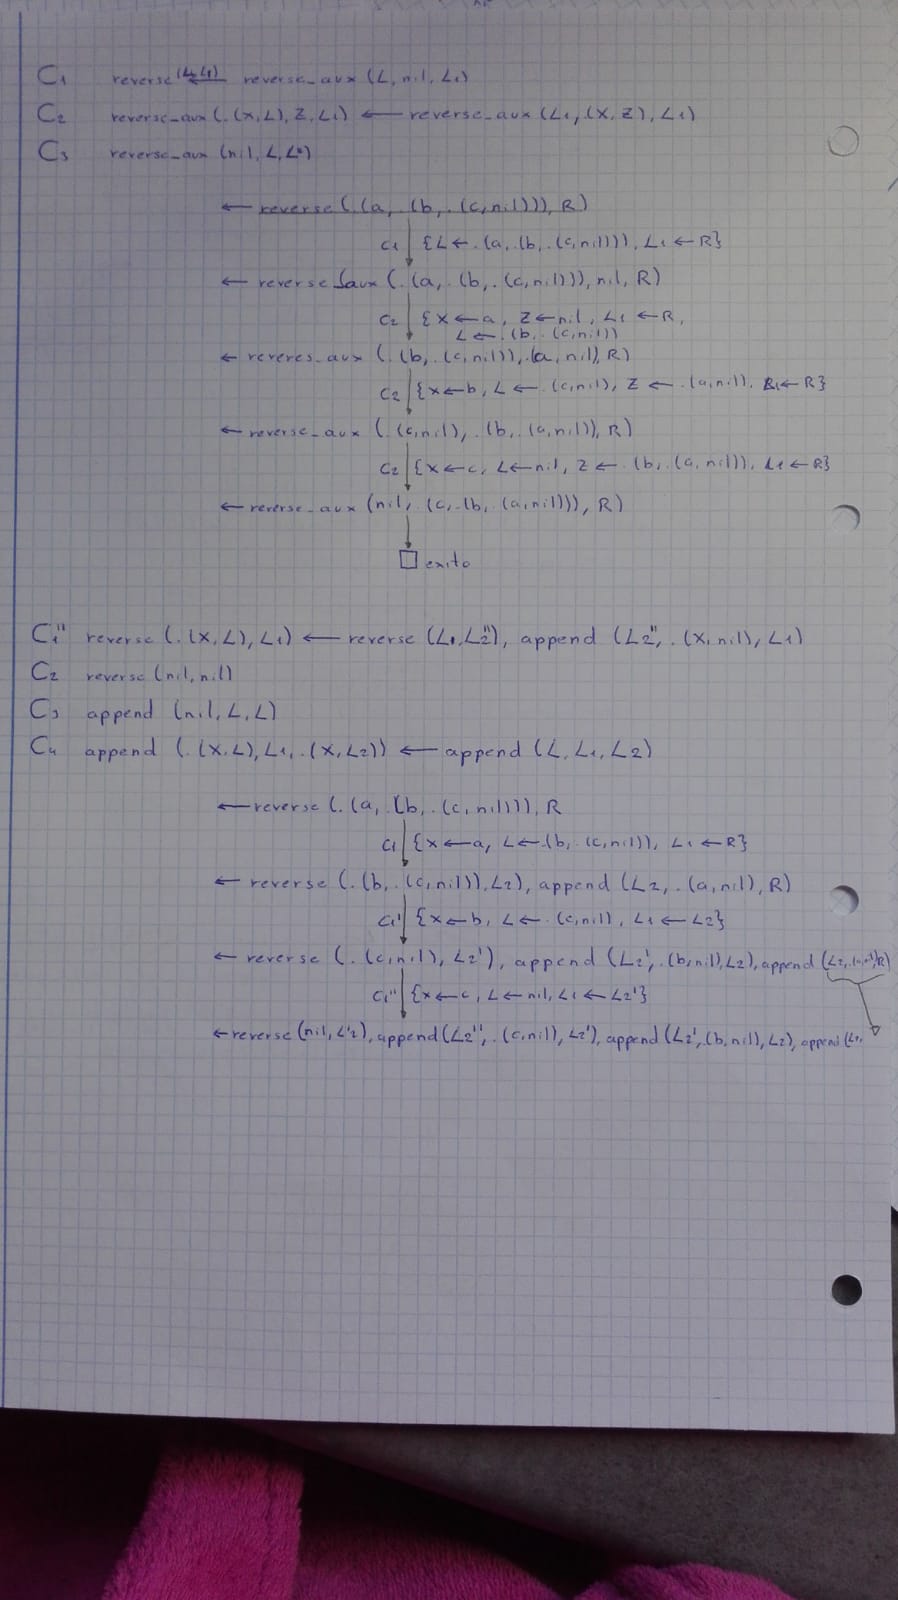 C1 reverse (L, L1) ← reverse_aux (L, nil, L1)
C2 reverse_aux (.(x,L), Z, L1) ← reverse_aux (L1, .(x, Z), L1)
C3 reverse_aux (nil, L, L)
← reverse (.(a, .(b, .(c,nil))), R)
C1 {L ← .(a, .(b, .(c,nil))), L1 ← R}
← reverse_aux (.(a, .(b, .(c,nil))), nil, R)
C2 {x ← a, Z ← nil, L1 ← R,
L ← .(b, .(c,nil))
← reveres_aux (.(b, .(c,nil)), .(a,nil), R)
C2 {x ← b, L ← .(c,nil), Z ← .(a,nil), L1 ← R}
← reverse_aux (.(c,nil), .(b, .(a,nil)), R)
C2 {x ← c, L ← nil, Z ← .(b, .(a,nil)), L1 ← R}
← reverse_aux (nil, .(c, .(b, .(a,nil))), R)
□ exito
C1'' reverse (.(x,L), L1) ← reverse (L1, L2''), append (L2'', .(x,nil), L1)
C2 reverse (nil, nil)
C3 append (nil, L, L)
C4 append (.(x,L), L1, .(x,L2)) ← append (L, L1, L2)
← reverse (.(a, .(b, .(c,nil))), R
C1 {x ← a, L ← .(b, .(c,nil)), L1 ← R}
← reverse (.(b, .(c,nil)), L2), append (L2, .(a,nil), R)
C1' {x ← b, L ← .(c,nil), L1 ← L2}
← reverse (.(c,nil), L2'), append (L2', .(b,nil), L2), append (L2, .(a,nil) R)
C1'' {x ← c, L ← nil, L1 ← L2'}
← reverse (nil, L''2), append (L2'', .(c,nil), L2'), append (L2', .(b,nil), L2), append (L2,